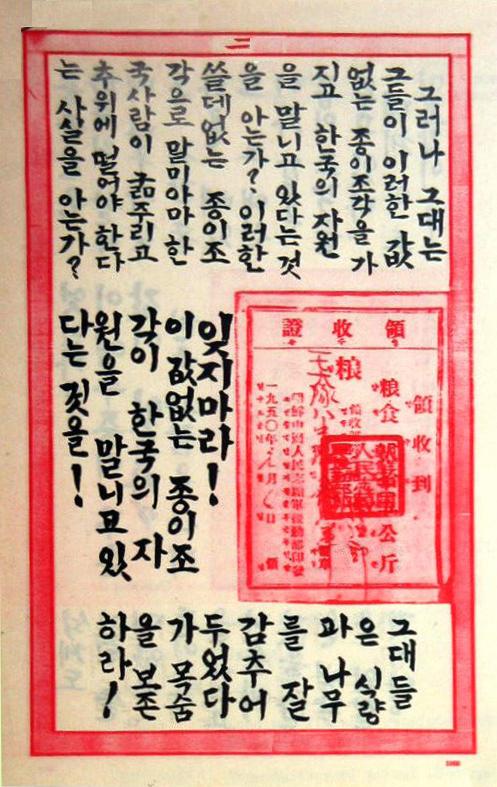 二
그러나 그대는
그들이 이러한 값
없는 종이조각을 가
지고 한국의 자원
을 말니고 있다는 것
을 아는가? 이러한
쓸데없는 종이조
각으로 말미아마 한
국사람이 굶주리고
추위에 떨어야 한다
는 사실을 아는가?
領收證
領收到
粮食 公斤
粮
一九五〇年 月 日
잊지마라!
이 값없는 종이조
각이 한국의 자
원을 말니고 있
다는 것을!
그대들
은 식량
과 나무
를 잘
감추어
두었다
가 목숨
을 보존
하라!